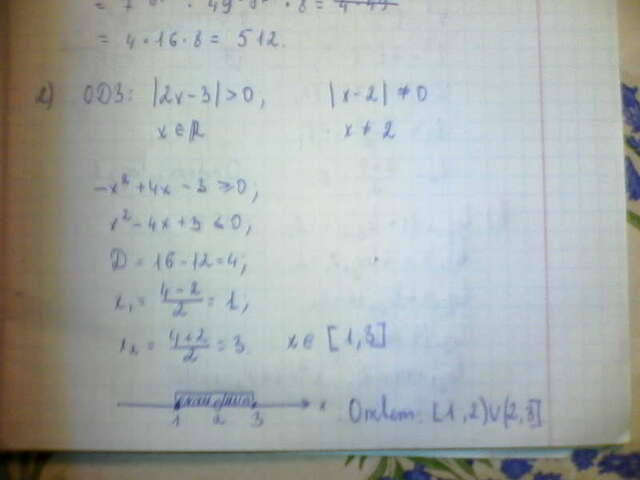 = 4 · 16 · 8 = 512.
2) ОДЗ: |2x-3| > 0, |x-2| ≠ 0
x ∈ R x ≠ 2
-x² + 4x - 3 ≥ 0,
x² - 4x + 3 ≤ 0,
D = 16 - 12 = 4;
x₁ = (4-2)/2 = 1;
x₂ = (4+2)/2 = 3 x ∈ [1,3]
1 2 3 x Ответ: [1,2)∪(2,3]